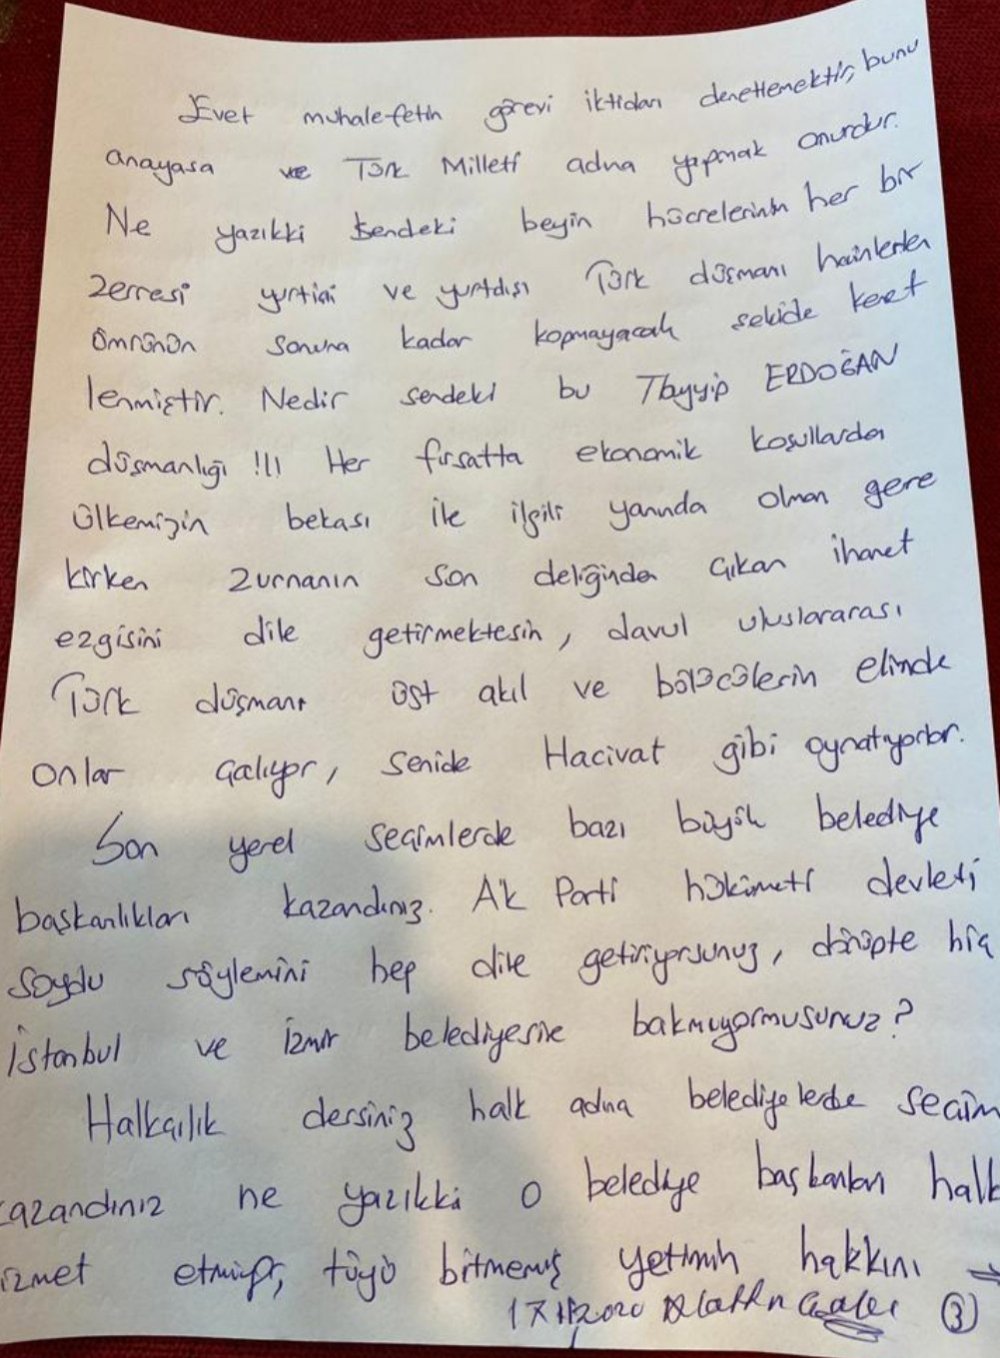 Evet muhalefetin görevi iktidarı denetlemektir, bunu
anayasa ve Türk Milleti adına yapmak onurdur.
Ne yazıkki sendeki beyin hücrelerinin her bir
zerresi yurtiçi ve yurtdışı Türk düşmanı hainlerden
ömrünün sonuna kadar kopmayacak şekide kenet
lenmiştir. Nedir sendeki bu Tayyip ERDOĞAN
düşmanlığı !!! Her fırsatta ekonomik koşullardan
Ülkemizin bekası ile ilgili yanında olman gere
kirken zurnanın son deliğinden çıkan ihanet
ezgisini dile getirmektesin, davul uluslararası
Türk düşmanı üst akıl ve bölücülerin elinde
onlar çalıyor, senide Hacivat gibi oynatıyorlar.
Son yerel seçimlerde bazı büyük belediye
başkanlıkları kazandınız. AK Parti hükümeti devleti
soydu söylemini hep dile getiriyorsunuz, dönüpte hiç
İstanbul ve İzmir belediyesine bakmıyormusunuz?
Halkçılık dersiniz halk adına belediyelerde seçim
kazandınız ne yazıkki o belediye başkanları halk
izmet etmiyor, tüyü bitmemiş yetimin hakkını →
2020 3